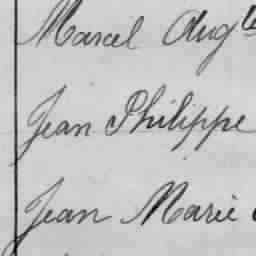 Marcel Aug.te
Jean Philippe
Jean Marie